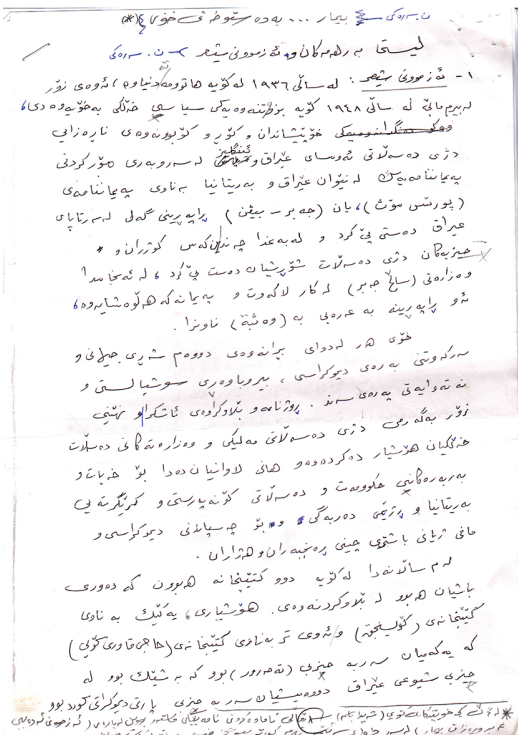 لیستی بەرهەمەکان و ئەزموونی شیعر
١- ئەزموونی شیعر: لە ساڵی ١٩٣٦ لە کۆیە هاتوومەتە دنیاوە، ئەوەی زۆر
لە بیرم مابێ لە ساڵی ١٩٤٨ کۆیە بزوتنەوەیەکی سیاسی خەڵکی بەخۆیەوە دی،
خۆپیشاندان و کۆڕ و کۆبوونەوەی ناڕەزایی
دژی دەسەڵاتی ئەوسای عێراق و ئینگلیز لەسەروبەری مۆرکردنی
پەیماننامەیەک لە نێوان عێراق و بەریتانیا بەناوی پەیماننامەی
(پورتسموث)، یان (جەبر - بیڤن) ڕاپەڕینی گەلی لەسەرتاپای
عێراق دەستی پێ کرد و لە بەغدا چەندین کەس کوژران و
حیزبەکان دژی دەسەڵات شۆڕشیان دەست پێ کرد، لە ئەنجامدا
وەزارەتی (ساڵح جەبر) لە کار لاکەوت و پەیمانەکە هەڵوەشایەوە،
ئەو ڕاپەڕینە بە عەرەبی بە (وەثبة) ناونرا.
خۆی هەر لەدوای بڕانەوەی دووەم شەڕی جیهانی و
سەرکەوتنی بەرەی دیموکراسی، بیروباوەڕی سوشیالستی و
نەتەوایەتی پەرەی سەند. ڕۆژنامە و بڵاوکراوەی ئاشکرا و نهێنی
زۆر بەگەرمی دژی دەسەڵاتی مەلیکی و وەزارەتەکانی دەسەڵات
خەڵکیان هۆشیار دەکردەوە و هانی لاوانیان دەدا بۆ خەبات و
بەربەرەکانیی حکوومەت و دەسەڵاتی کۆنەپەرستی و کرێگرتەیی
بەریتانیا و ڕژێمی دەرەبەگی و بۆ چەسپانی دیموکراسی و
مافی ژیانی باشتری چینی ڕەنجبەران و هەژاران.
لەم ساڵانەدا لە کۆیە دوو کتێبخانە هەبوون کە دەوری
باشیان هەبوو لە بڵاوکردنەوەی هۆشیاری، یەکێک بەناوی
کتێبخانەی و ئەوی تر بەناوی کتێبخانەی (حاجی قادری کۆیی)
کە یەکەمیان سەر بە حیزبی (تەحەرور) بوو کە بەشێک بوو لە
حیزبی شیوعی عێراق دووەمیشیان سەر بە حیزبی پارتی دیموکراتی کورد بوو